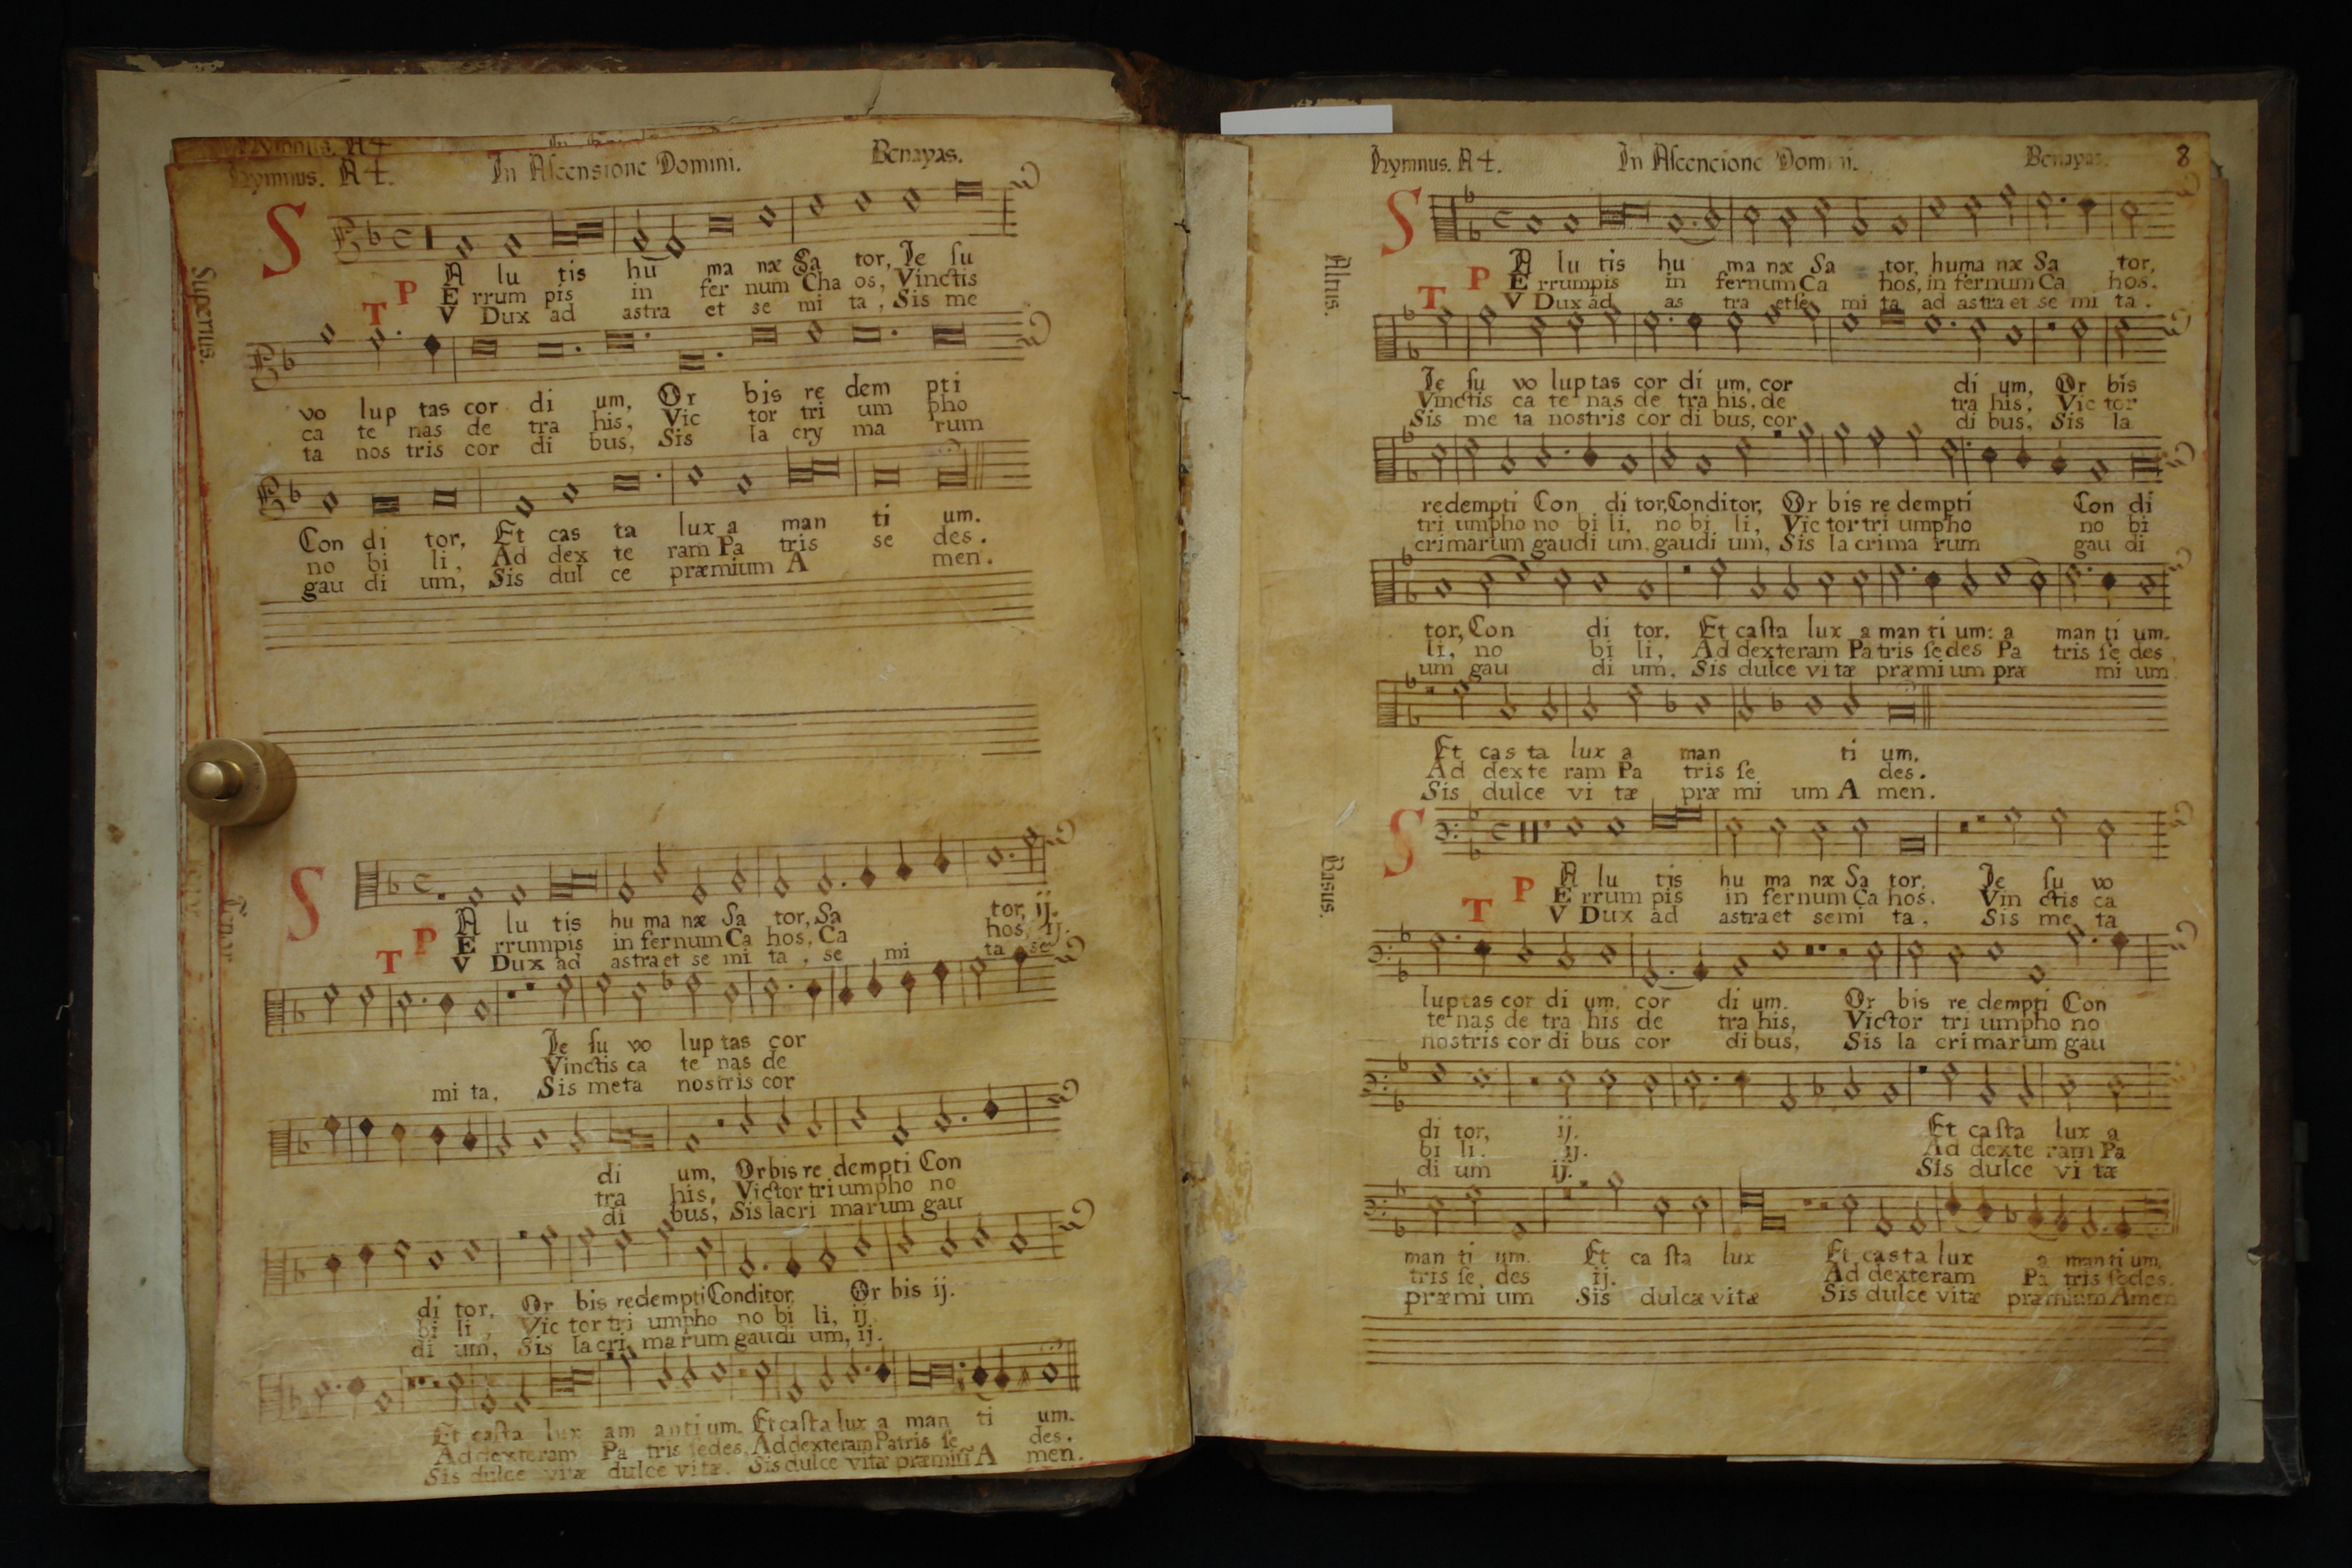 Hymnus. A 4. In Ascensione Domini. Benayas.
Superius.
S
A lu tis hu ma næ Sa tor, Ie su
P E rrum pis in fer num Cha os, Vinctis
T V Dux ad astra et se mi ta, Sis me
vo lup tas cor di um, Or bis re dem pti
ca te nas de tra his, Vic tor tri um pho
ta nos tris cor di bus, Sis la cry ma rum
Con di tor, Et cas ta lux a man ti um.
no bi li, Ad dex te ram Pa tris se des.
gau di um, Sis dul ce præmium A men.
Tenor.
S
A lu tis hu ma næ Sa tor, Sa tor, ij.
P E rrumpis in fernum Ca hos, Ca hos, ij.
T V Dux ad astra et se mi ta, se mi ta se
Ie su vo lup tas cor
Vinctis ca te nas de
mi ta, Sis meta nostris cor
di um, Orbis re dempti Con
tra his, Victor triumpho no
di bus, Sis lacri marum gau
di tor, Or bis redempti Conditor, Or bis ij.
bi li, Vic tor tri umpho no bi li, ij.
di um, Sis la cri marum gaudi um, ij.
Et casta lux am anti um. Et casta lux a man ti um.
Ad dexteram Pa tris sedes, Ad dexteram Patris se des.
Sis dulce vitæ dulce vitæ. Sis dulce vitæ præmiũ A men.
Hymnus. A 4. In Ascencione Domini. Benayas. 8
Altus.
S
A lu tis hu ma næ Sa tor, huma næ Sa tor,
P E rrumpis in fernum Ca hos, in fernum Ca hos.
T V Dux ad as tra et se mi ta ad astra et se mi ta.
Ie su vo luptas cor di um, cor di um, Or bis
Vinctis ca te nas de tra his, de tra his, Vic tor
Sis me ta nostris cor di bus, cor di bus, Sis la
redempti Con di tor, Conditor, Or bis re dempti Con di
tri umpho no bi li, no bi li, Vic tor tri umpho no bi
crimarum gaudi um, gaudi um, Sis la crima rum gau di
tor, Con di tor, Et casta lux a man ti um: a man ti um.
li, no bi li, Ad dexteram Patris sedes Pa tris se des,
um gau di um, Sis dulce vi tæ præmi um præ mi um
Et cas ta lux a man ti um.
Ad dexte ram Pa tris se des.
Sis dulce vi tæ præ mi um A men.
Basus.
S
A lu tis hu ma næ Sa tor, Ie su vo
P E rrum pis in fernum Ca hos. Vin ctis ca
T V Dux ad astra et semi ta, Sis me ta
luptas cor di um, cor di um. Or bis re dempti Con
te nas de tra his de tra his, Victor tri umpho no
nostris cor di bus cor di bus, Sis la crimarum gau
di tor, ij. Et casta lux a
bi li. ij. Ad dexte ram Pa
di um ij. Sis dulce vi tæ
man ti um. Et ca sta lux Et casta lux a man ti um,
tris se des ij. Ad dexteram Pa tris sedes.
præmi um Sis dulcæ vitæ Sis dulce vitæ præmium Amen